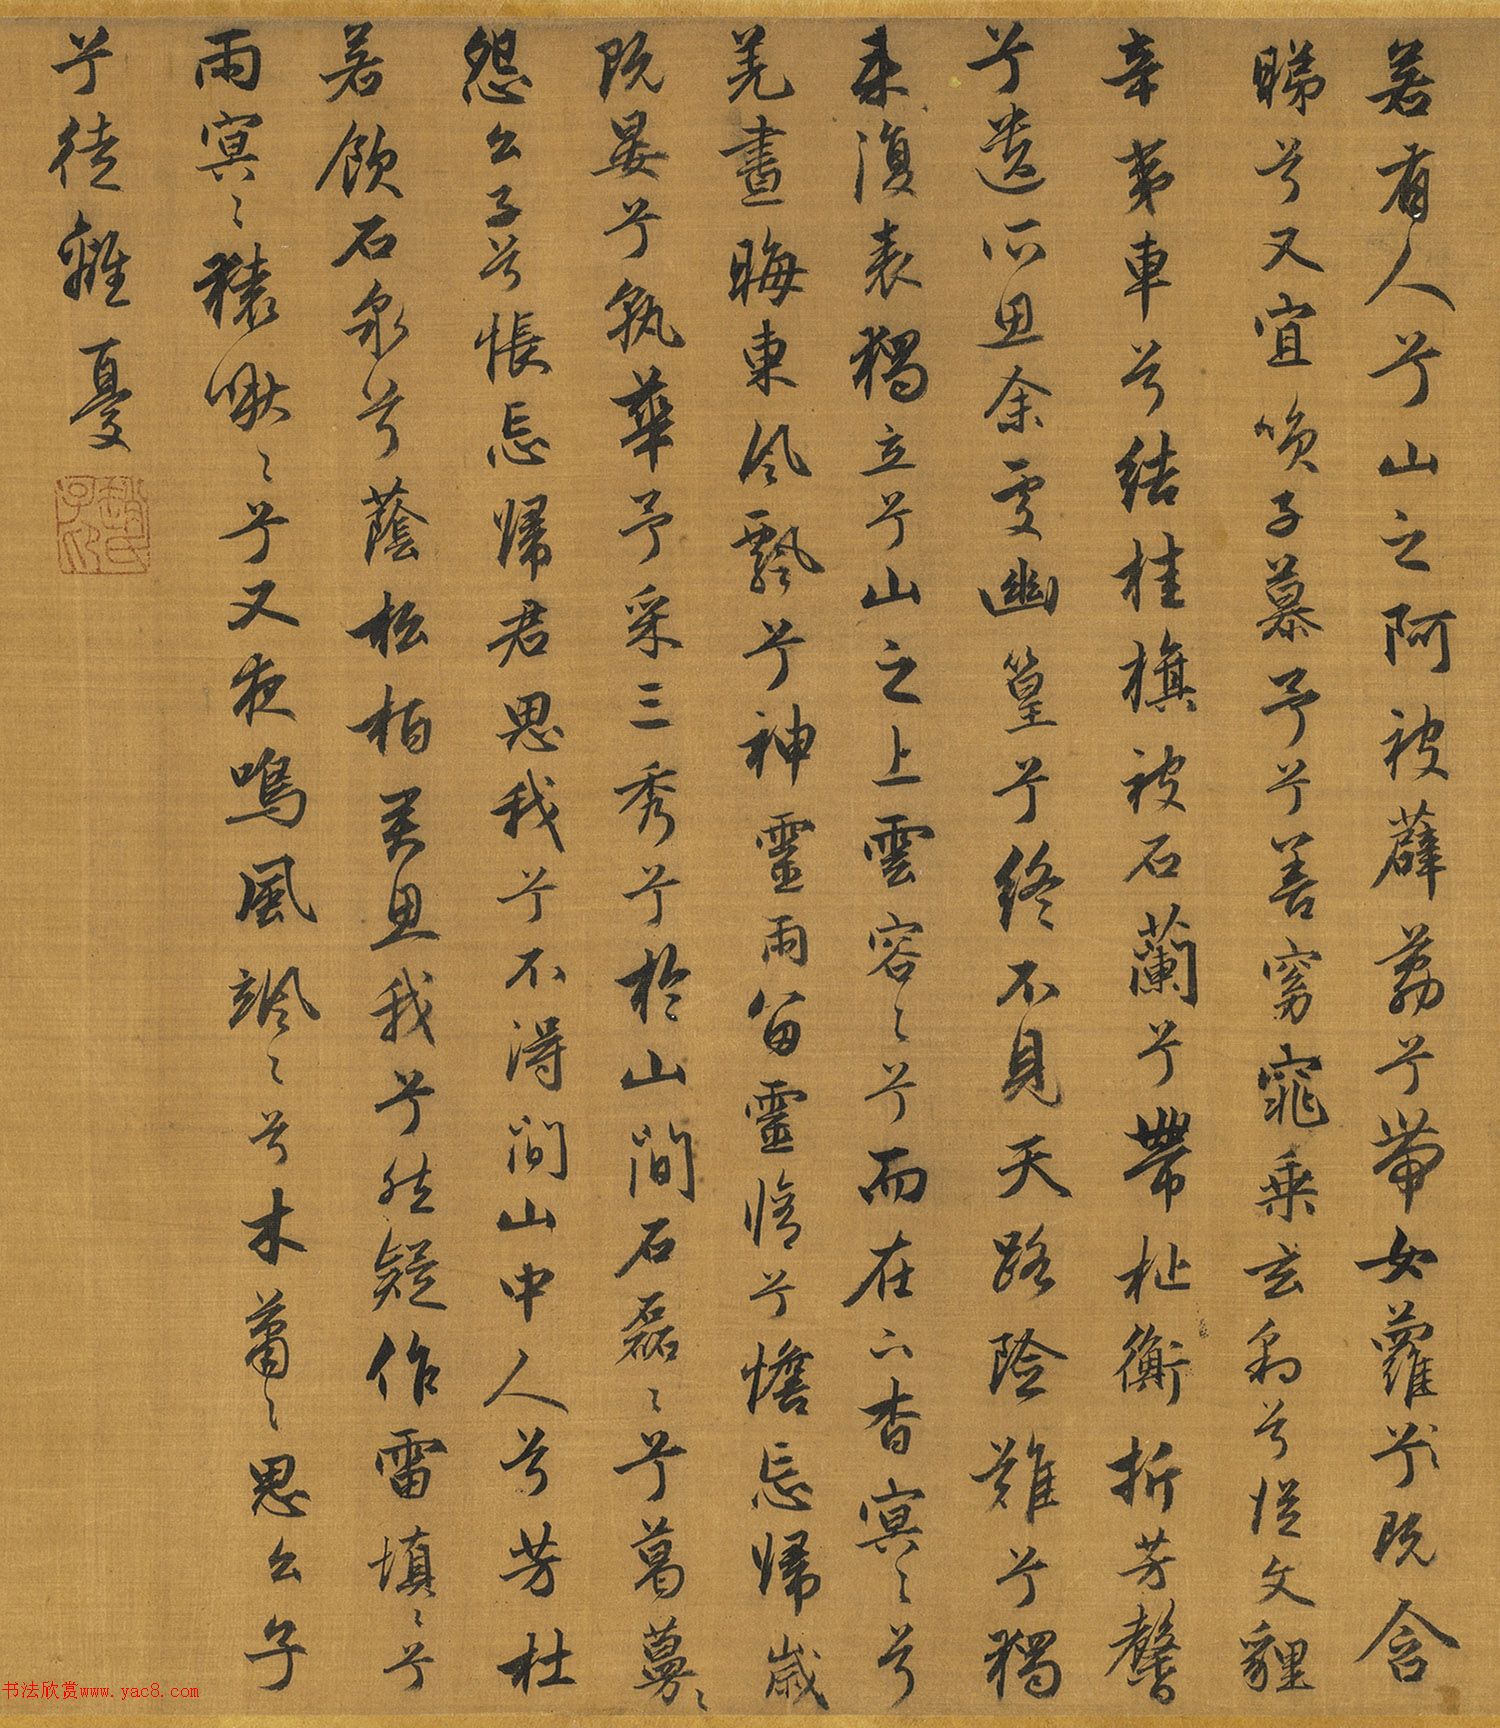 若有人兮山之阿被薜荔兮帶女蘿兮既含
睇兮又宜咲子慕予兮善窈窕乘玄豹兮從文貍
辛夷車兮結桂旗被石蘭兮帶杜衡折芳馨
兮遺所思余處幽篁兮終不見天路險難兮獨
來復表獨立兮山之上雲容〻兮而在下杳冥〻兮
羌晝晦東風飄兮神靈雨留靈脩兮憺忘歸歲
既晏兮孰華予采三秀兮於山間石磊〻兮葛蔓〻
怨公子兮悵忘歸君思我兮不得間山中人兮芳杜
若飲石泉兮蔭松柏君思我兮然疑作雷填〻兮
雨冥〻猿啾〻兮又夜鳴風颯〻兮木蕭〻思公子
兮徒離憂
趙氏子昂
书法欣赏www.yac8.com